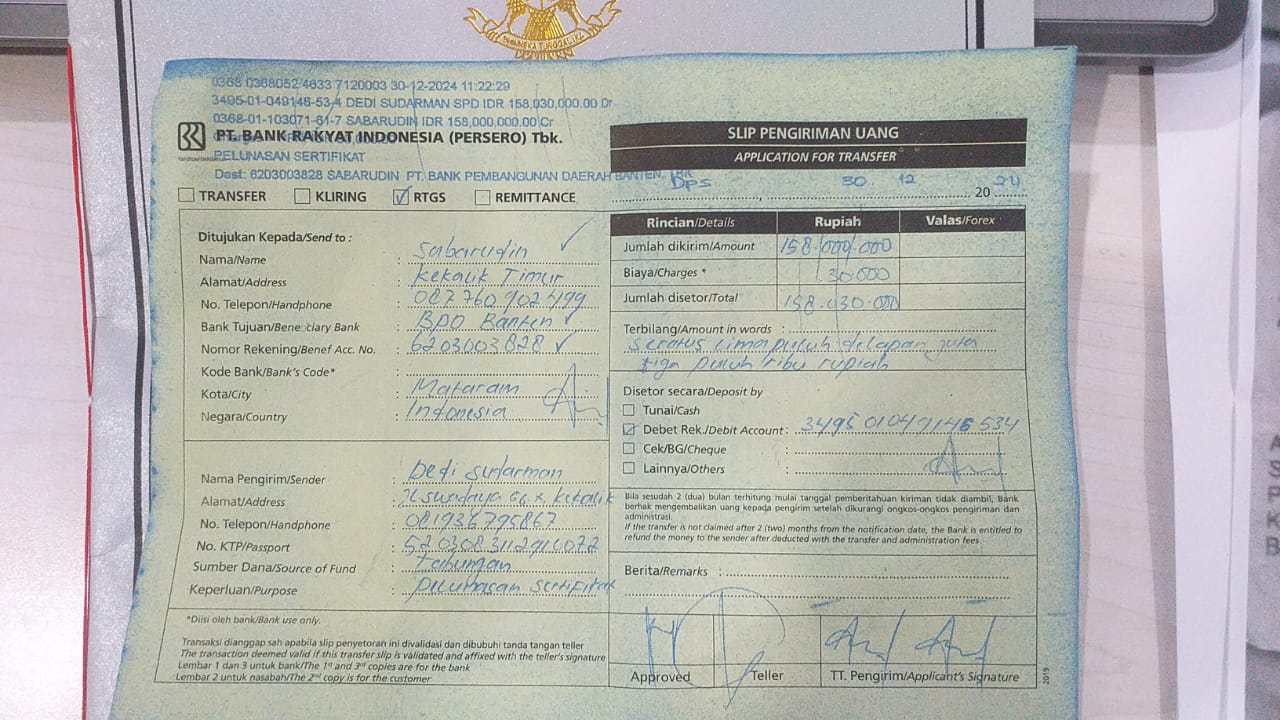 0368 0368052 4633 7120003 30-12-2024 11:22:29
3495-01-049146-53-4 DEDI SUDARMAN SPD IDR 158,030,000.00 Dr
0368-01-103071-61-7 SABARUDIN IDR 158,000,000.00 Cr
PT. BANK RAKYAT INDONESIA (PERSERO) Tbk.
PELUNASAN SERTIFIKAT
Dest: 6203003828 SABARUDIN PT. BANK PEMBANGUNAN DAERAH BANTEN, TBK
SLIP PENGIRIMAN UANG
APPLICATION FOR TRANSFER
Dps, 30 . 12 2024
TRANSFER KLIRING RTGS REMITTANCE
Ditujukan Kepada/Send to :
Nama/Name : Sabarudin
Alamat/Address : Kekalik Timur
No. Telepon/Handphone :
Bank Tujuan/Beneficiary Bank : BPD Banten
Nomor Rekening/Benef Acc. No. : 6203003828
Kode Bank/Bank's Code* :
Kota/City : Mataram
Negara/Country : Indonesia
Nama Pengirim/Sender : Dedi Sudarman
Alamat/Address : Jl swadaya Gg x, Kekalik
No. Telepon/Handphone : 081936795867
No. KTP/Passport : 5203083112910072
Sumber Dana/Source of Fund : Tabungan
Keperluan/Purpose : Pelunasan Sertifikat
*Diisi oleh bank/Bank use only.
Transaksi dianggap sah apabila slip penyetoran ini divalidasi dan dibubuhi tanda tangan teller
The transaction deemed valid if this transfer slip is validated and affixed with the teller's signature
Lembar 1 dan 3 untuk bank/The 1st and 3rd copies are for the bank
Lembar 2 untuk nasabah/The 2nd copy is for the customer
Rincian/Details Rupiah Valas/Forex
Jumlah dikirim/Amount 158.000.000
Biaya/Charges * 30.000
Jumlah disetor/Total 158.030.000
Terbilang/Amount in words :
seratus lima puluh delapan juta
tiga puluh ribu rupiah
Disetor secara/Deposit by
Tunai/Cash
Debet Rek./Debit Account : 3495 01049146 534
Cek/BG/Cheque :
Lainnya/Others :
Bila sesudah 2 (dua) bulan terhitung mulai tanggal pemberitahuan kiriman tidak diambil, Bank
berhak mengembalikan uang kepada pengirim setelah dikurangi ongkos-ongkos pengiriman dan
administrasi.
If the transfer is not claimed after 2 (two) months from the notification date, the Bank is entitled to
refund the money to the sender after deducted with the transfer and administration fees
Berita/Remarks :
Approved Teller TT. Pengirim/Applicant's Signature
2019